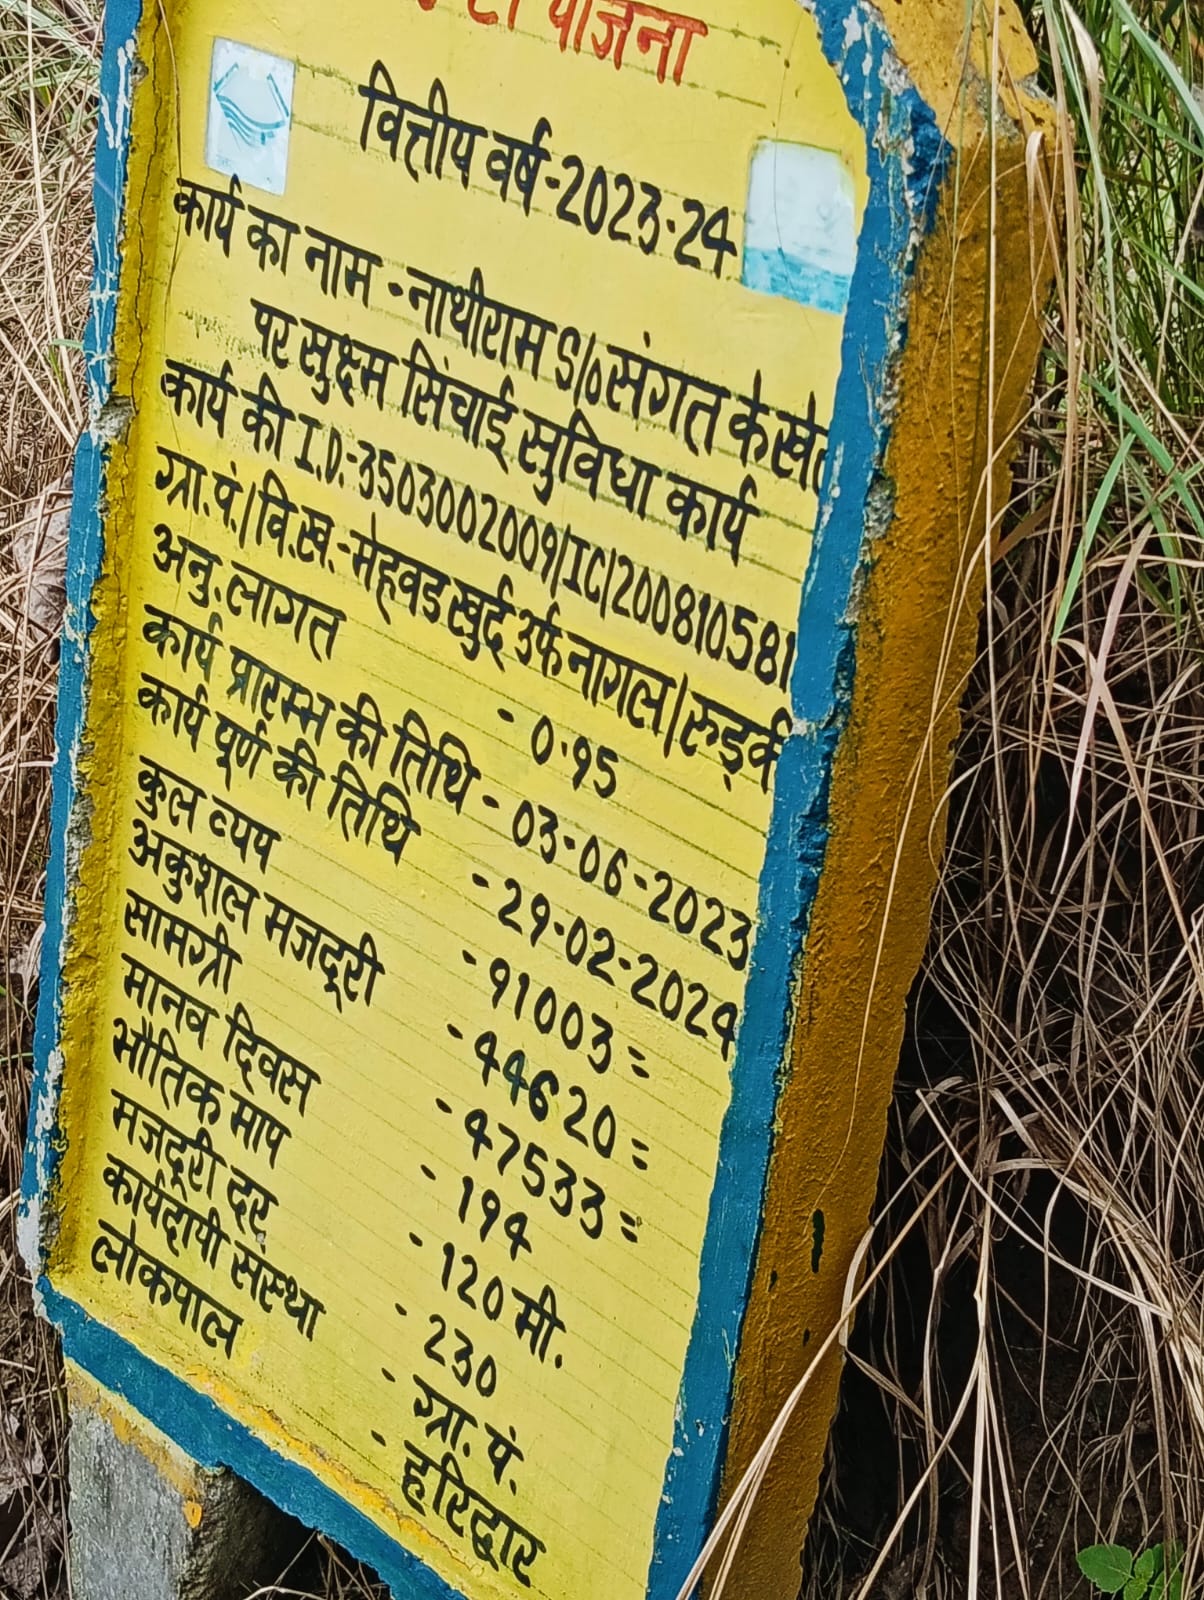 योजना
वित्तीय वर्ष -2023-24
कार्य का नाम -नाथीराम S/o संगत के खेत
पर सुक्ष्म सिंचाई सुविधा कार्य
कार्य की I.D.-3503002009/IC/200810581
ग्रा.पं./वि.ख.-मेहवड खुर्द उर्फ नागल/रुड़की
अनु.लागत - 0.95
कार्य प्रारम्भ की तिथि - 03-06-2023
कार्य पूर्ण की तिथि - 29-02-2024
कुल व्यय - 91003=
अकुशल मजदूरी - 44620=
सामग्री - 47533=
मानव दिवस - 194
भौतिक माप - 120 मी.
मजदूरी दर - 230
कार्यदायी संस्था - ग्रा. पं.
लोकपाल - हरिद्वार